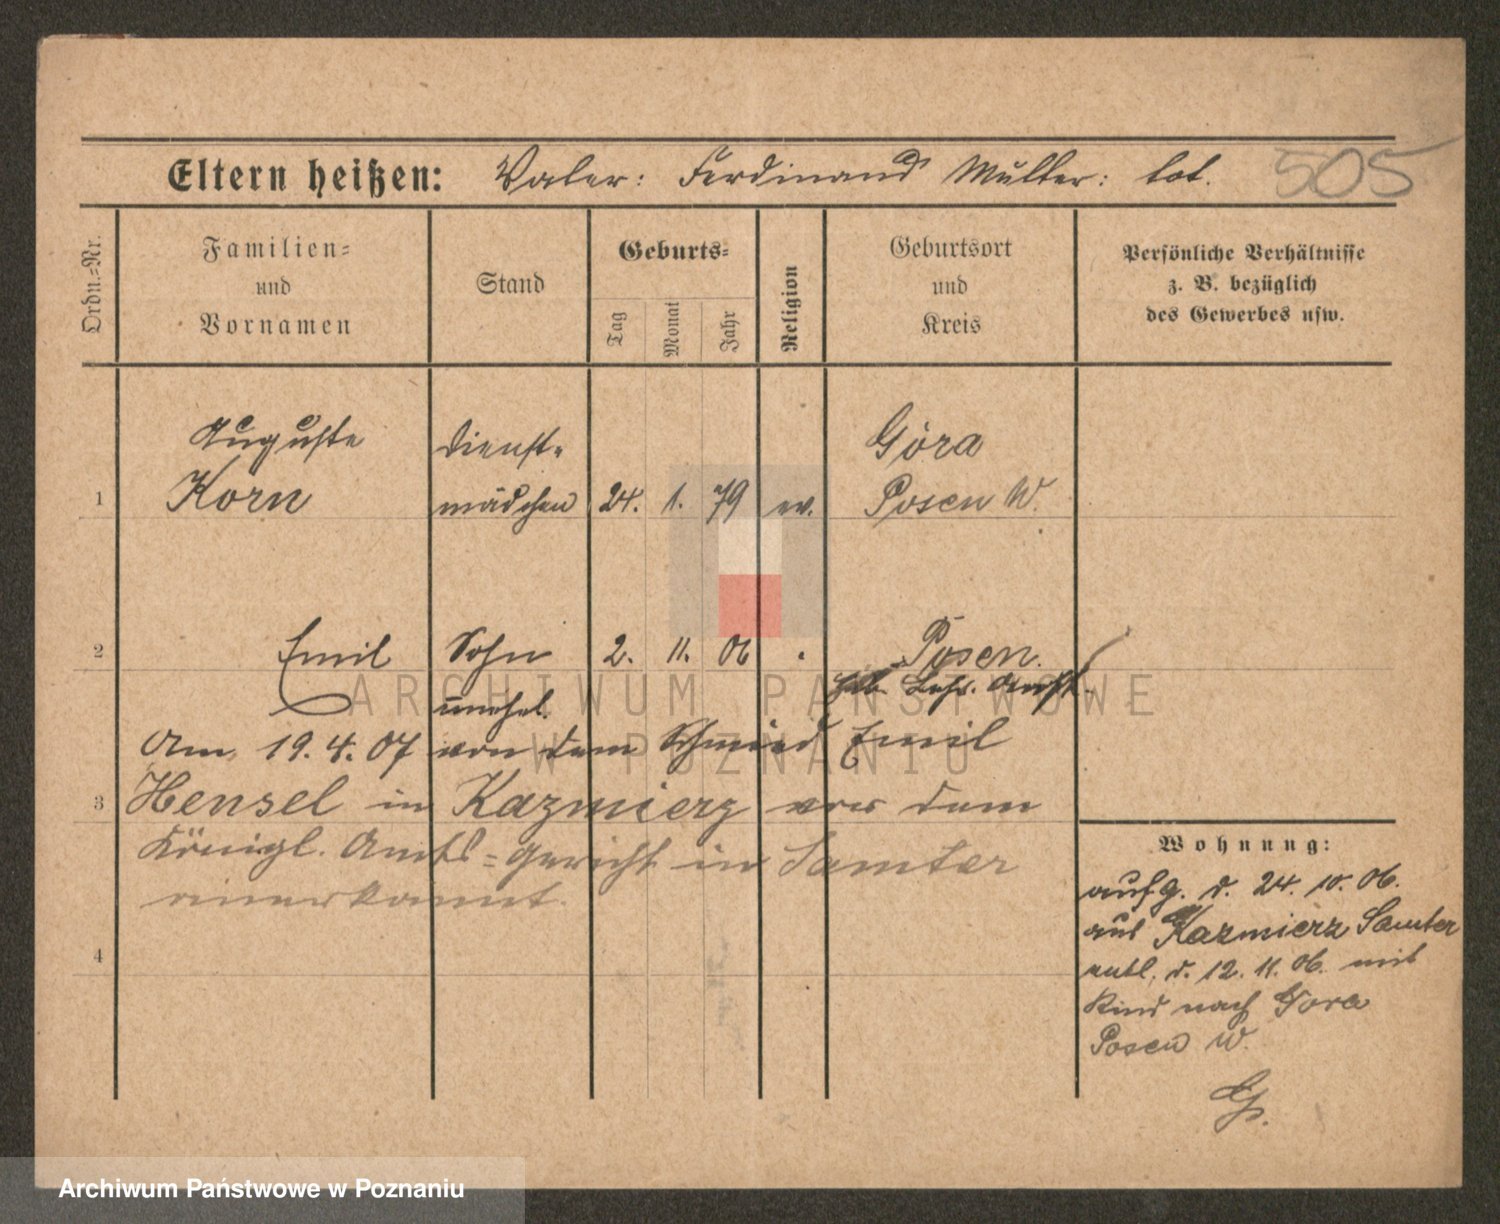 Eltern heißen: Vater: Ferdinand Mutter: tot. 505
Ordn.=Nr.
Familien=
und
Vornamen
Stand
Geburts=
Tag
Monat
Jahr
Religion
Geburtsort
und
Kreis
Persönliche Verhältnisse
z. B. bezüglich
des Gewerbes usw.
Auguste Dienst= Góra
1 Korn mädchen 24. 1. 79 ev. Posen W.
2 Emil Sohn 2. 11. 06 Posen.
unehel. Heb. Lehr. Anst.
Am 19. 4. 07 von dem Schmied Emil
3 Hensel in Kazmierz vor dem
Königl. Amts=gericht in Samter
anerkannt.
4
Wohnung:
aufg. d. 24. 10. 06.
aus Kazmierz Samter
entl. d. 12. 11. 06. mit
Kind nach Gora
Posen W.
ARCHIWUM PAŃSTWOWE
W POZNANIU
Archiwum Państwowe w Poznaniu